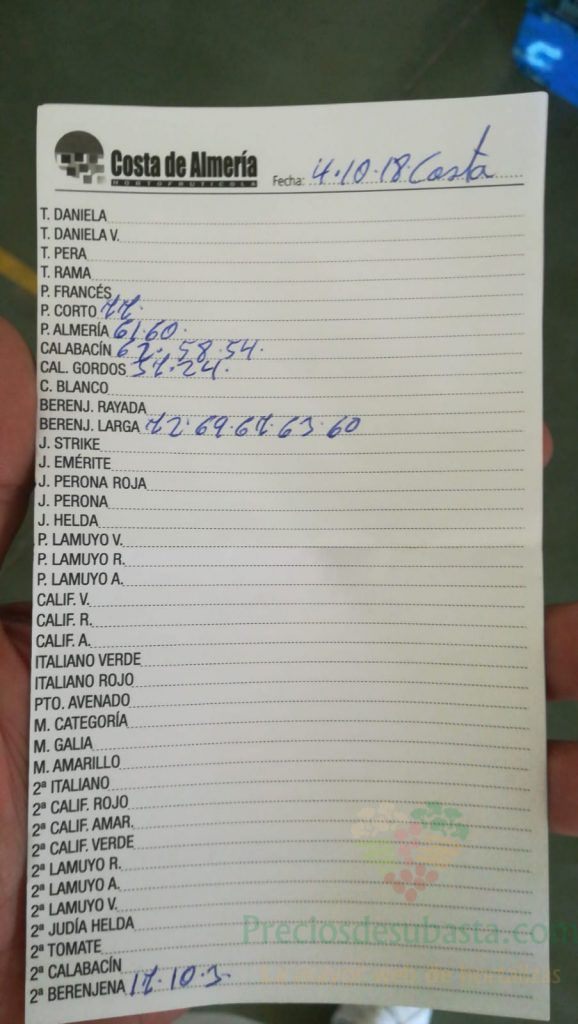 Costa de Almería
HORTOFRUTÍCOLA
Fecha: 4.10.18 Costa
T. DANIELA
T. DANIELA V.
T. PERA
T. RAMA
P. FRANCÉS
P. CORTO 77.
P. ALMERÍA 61.60.
CALABACÍN 67. 58.54.
CAL. GORDOS 37.24.
C. BLANCO
BERENJ. RAYADA
BERENJ. LARGA 72.69.67.63.60
J. STRIKE
J. EMÉRITE
J. PERONA ROJA
J. PERONA
J. HELDA
P. LAMUYO V.
P. LAMUYO R.
P. LAMUYO A.
CALIF. V.
CALIF. R.
CALIF. A.
ITALIANO VERDE
ITALIANO ROJO
PTO. AVENADO
M. CATEGORÍA
M. GALIA
M. AMARILLO
2ª ITALIANO
2ª CALIF. ROJO
2ª CALIF. AMAR.
2ª CALIF. VERDE
2ª LAMUYO R.
2ª LAMUYO A.
2ª LAMUYO V.
2ª JUDÍA HELDA
2ª TOMATE
2ª CALABACÍN
2ª BERENJENA 17.10.3.
Preciosdesubasta.com